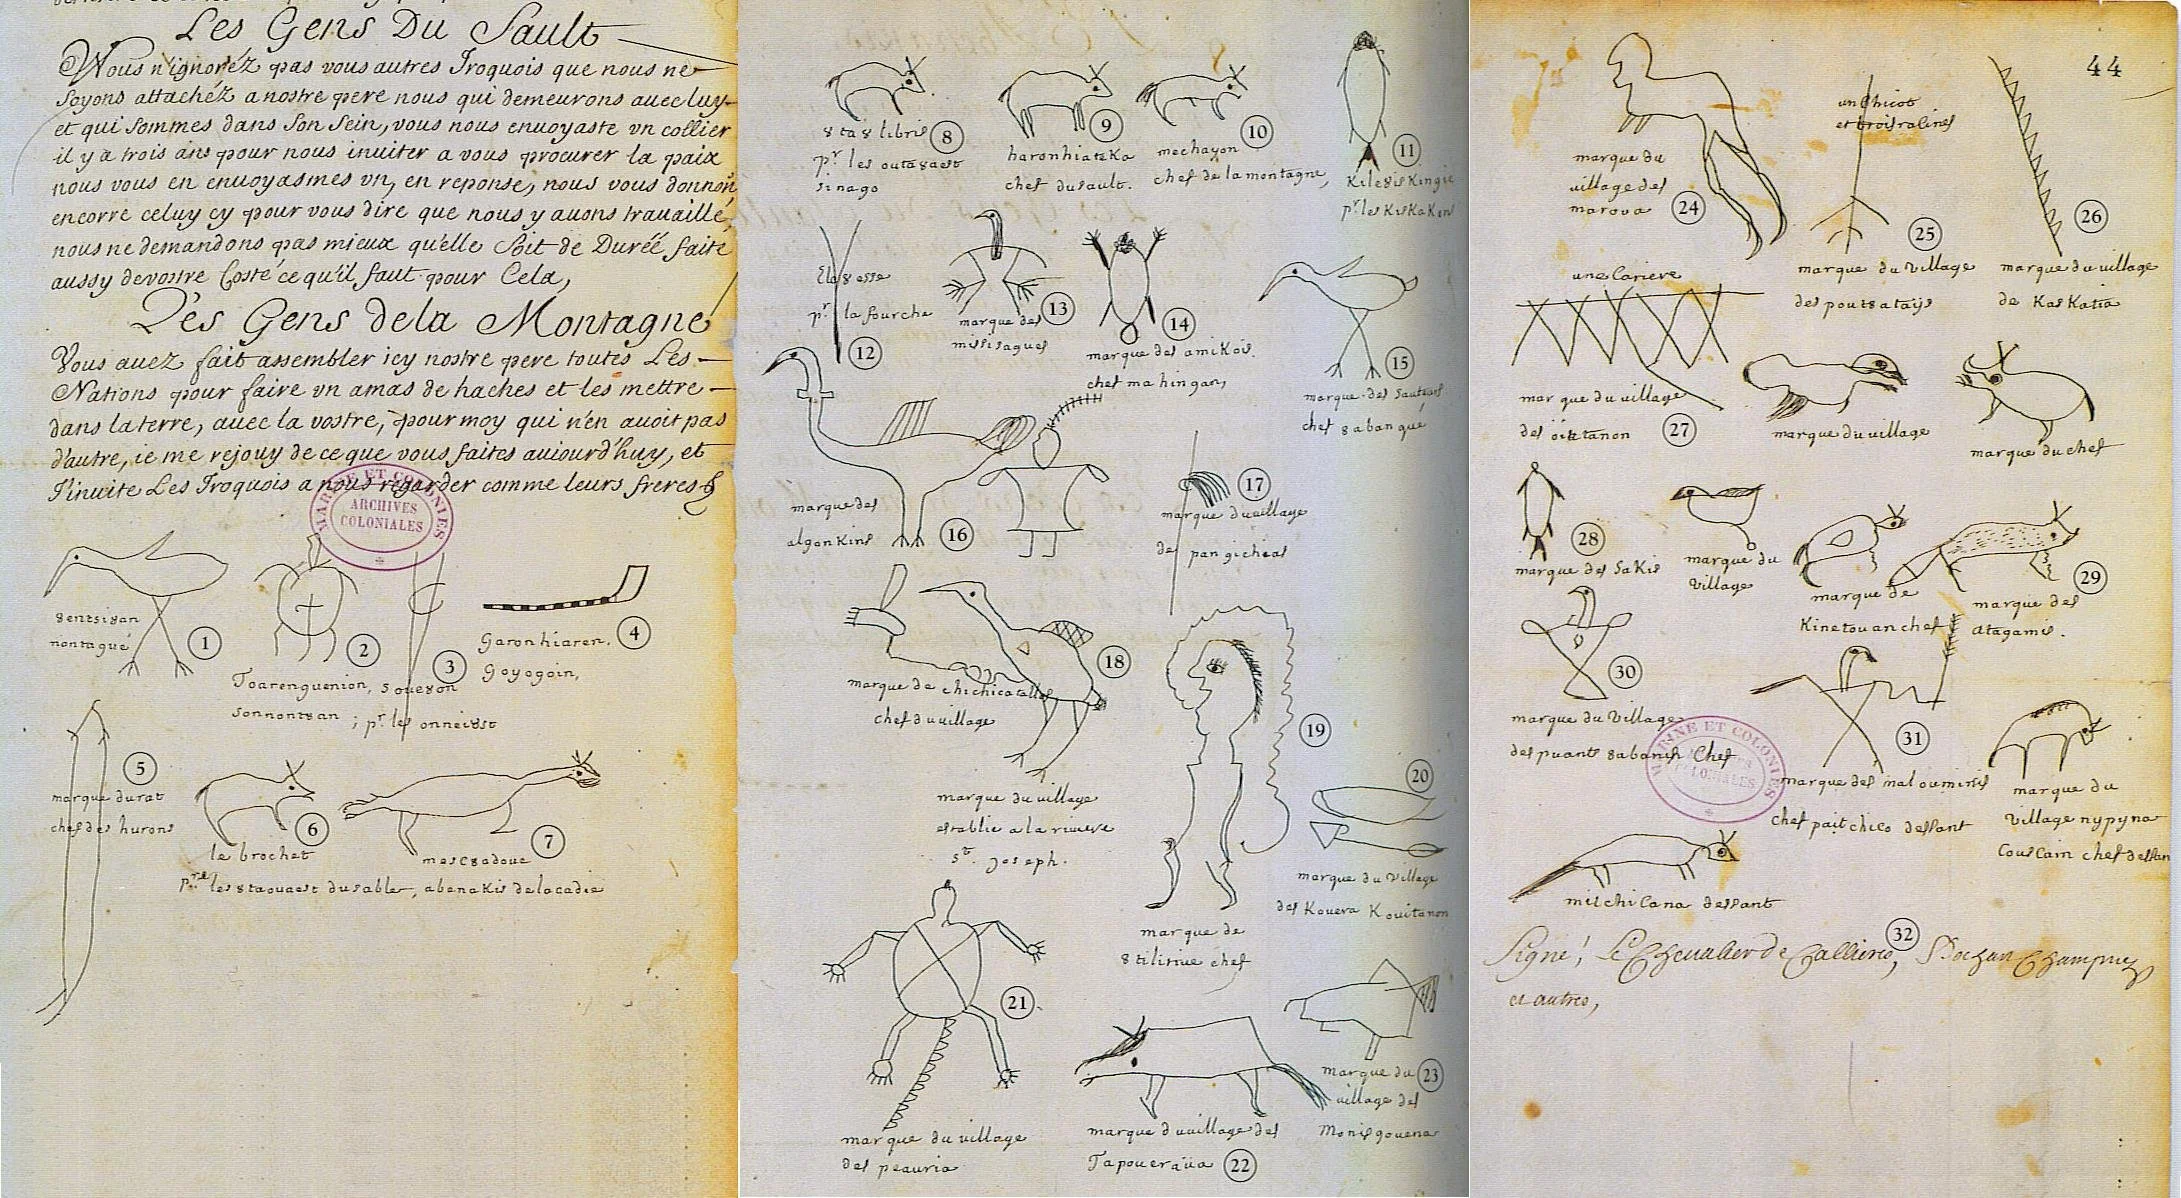 Les Gens Du Sault
Vous n'ignoréz pas vous autres Iroquois que nous ne
soyons attachéz a nostre pere nous qui demeurons avec luy
et qui sommes dans son sein, vous nous envoyaste vn collier
il y a trois ans pour nous inuiter a vous procurer la paix
nous vous en enuoyasmes vn, en reponse, nous vous donnon
encorre celuy cy pour vous dire que nous y auons trauaillé,
nous ne demandons pas mieux qu'elle soit de Duréé faite
aussy de vostre Costé ce qu'il faut pour Cela,
Les Gens de la Montagne
Vous auez fait assembler icy nostre pere toutes Les
Nations pour faire vn amas de haches et les mettre
dans la terre, auec la vostre, pour moy qui n'en auoit pas
d'autre, ie me rejouy de ce que vous faites auiourd'huy, et
J'inuite Les Iroquois a nous regarder comme leurs freres
MARINE ET COLONIES
ARCHIVES
COLONIALES
8entsi8an
nontagué
1
2
Toarenguenion,
sonnont8an
3
so8e8on
pr. les onnei8st
4
Garonhiaren.
Goyogoin,
5
marque du rat
chef des hurons
6
le brochet
7
mesc8adoue
pre. les 8taouaest du sable, abenakis de lacadie
8ta8libris 8
pr. les outa8aest
sinago
9
haronhiateka
chef dusault.
10
mechayon
chef de la montagne,
11
Kiles8isKingie
pr. les KisKaKons
Ela8esse
pr. la fourche
12
13
marque des
missisagues
14
marque des amikois.
chef mahingan,
15
marque des sauteurs
chef 8abangué
marque des
algonkins
16
17
marque du village
de pangicheas
18
marque de chichicatallo
chef du village
marque du village
establie a la riuiere
st. Joseph.
19
marque de
8tilirine chef
20
marque du Village
des Kouera Kouitanon
21
marque du village
des peauria
marque du village des
Tapoueraüa 22
marque du 23
village des
Monisgouena
44
marque du
village des
maroua 24
un chicot
et trois racines
25
marque du Village
des pout8ataÿs
26
marque du village
de KasKaKia
une Cariere
marque du village
des 8iatanon 27
marque du village
marque du chef
28
marque des SaKis
marque du
Village
marque de
Kinetouan chef
29
marque des
atagamis.
30
marque du Village
des puants 8abanch Chef
31
marque des maloumints
chef paitchico dessant
marque du
Village nypyna
Couscain chef dessan
MARINE ET COLONIES
COLONIALES
milchilana dessant
32
Signé, Le Chevalier de Callieres, Bochart Champigny
et autres,